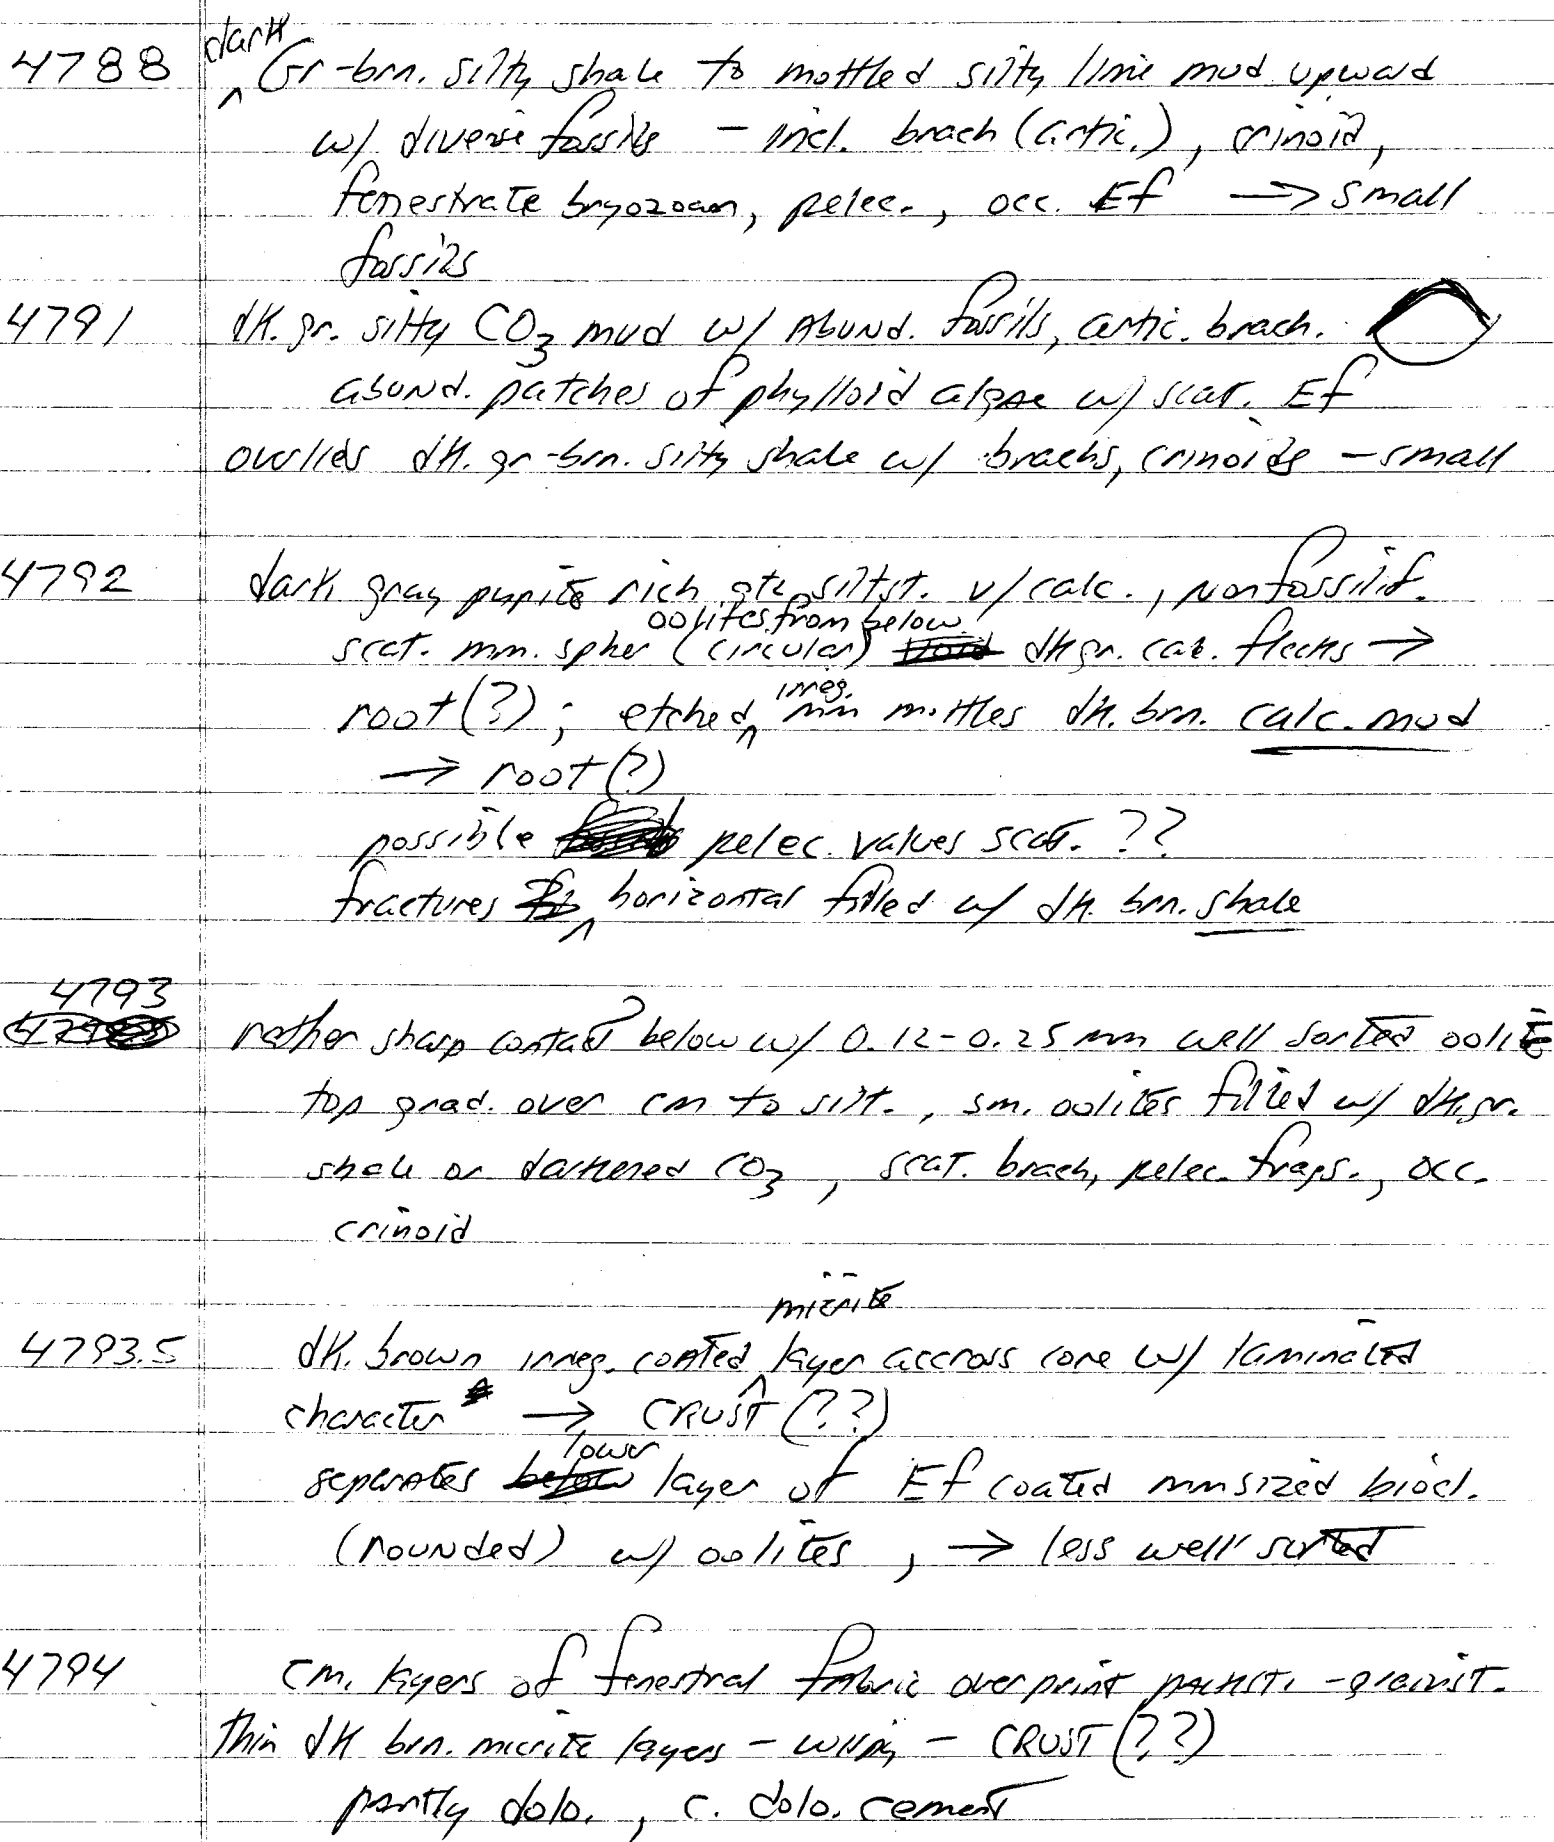 4788 dark Gr-brn. silty shale to mottled silty lime mud upward
w/ diverse fossils - incl. brach (artic.), crinoid,
fenestrate bryozoan, pelec., occ. Ef → small
fossils
4791 dk. gr. silty CO3 mud w/ Abund. fossils, artic. brach.
abund. patches of phylloid algae w/ scat. Ef
overlies dk. gr-brn. silty shale w/ brachs, crinoids - small
4792 dark gray rich qtz siltst. v/calc., nonfossilif.
oolites from below
scat. mm. spher (circular) dk gr. flecks →
root(?); etched irreg. mm mottles dk. brn. calc. mud
→ root(?)
possible pelec. valves scat. ??
fractures horizontal filled w/ dk. brn. shale
4793
rather sharp contact below w/ 0.12-0.25 mm well sorted oolite
top grad. over cm to silt., sm. oolites filled w/ dk.gr.
shale or darkened CO3, scat. brach, pelec. frags., occ.
crinoid
micrite
4793.5 dk. brown irreg. coated layer accross core w/ laminated
character → CRUST (??)
separates lower layer of Ef coated mm sized biocl.
(rounded) w/ oolites, → less well sorted
4794 cm. layers of fenestral fabric overprint packst. - grainst.
thin dk brn. micrite layers - wispy - CRUST (??)
partly dolo., c. dolo. cement